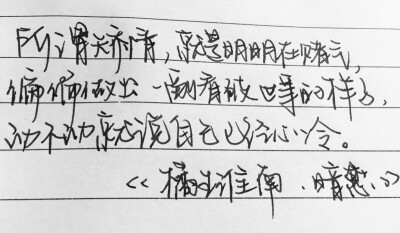 所谓矫情，就是明明在赌气，
偏偏做出一副看破世事的样子，
动不动就说自己已经心冷。
《橘生淮南·暗恋》